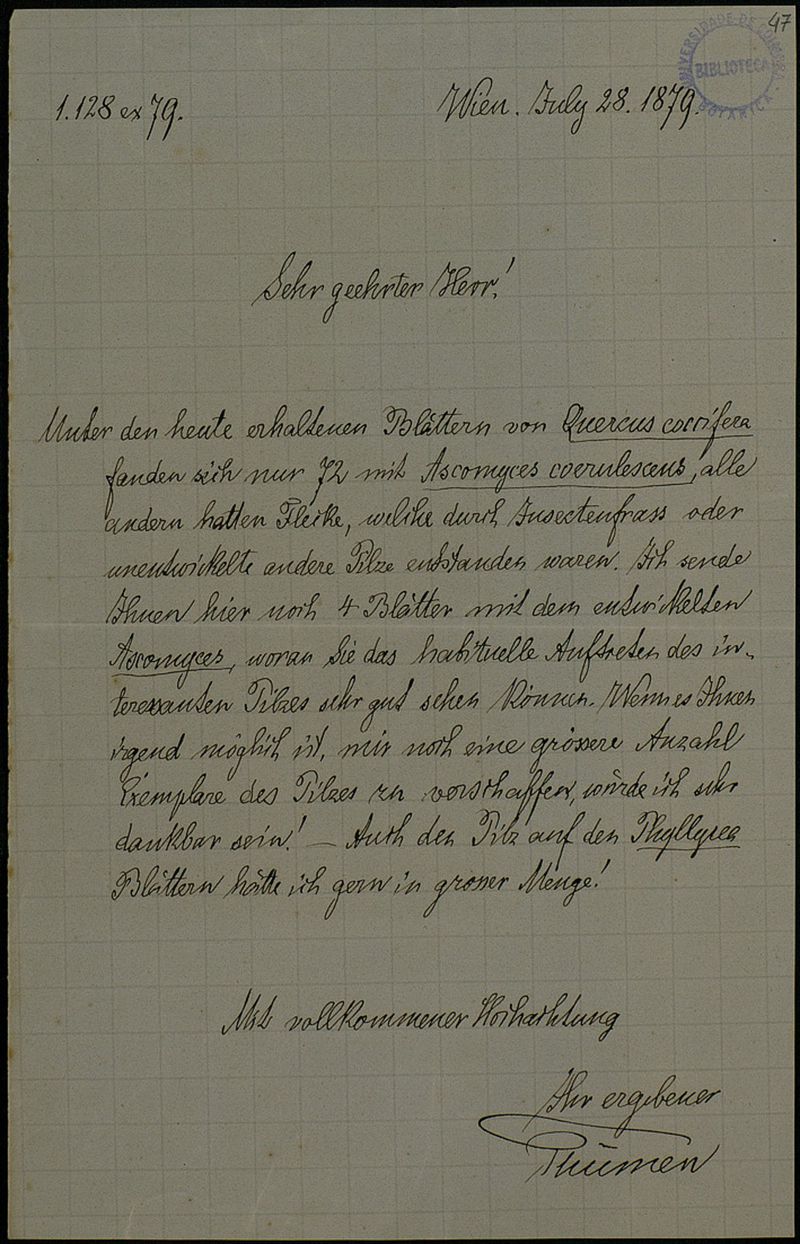 47
UNIVERSIDADE DE COIMBRA
BIBLIOTECA
BOTANICA
1.128 ex 79.
Wien. July 28. 1879.
Sehr geehrter Herr!
Unter den heute erhaltenen Blättern von Quercus coccifera
fanden sich nur 72 mit Ascomyces coerulescens, alle
andern hatten Flecke, welche durch Insectenfrass oder
unentwickelte andere Pilze entstanden waren. Ich sende
Ihnen hier noch 4 Blätter mit dem entwickelten
Ascomyces, woran Sie das habituelle Auftreten des in-
teressanten Pilzes sehr gut sehen können. Wenn es Ihnen
irgend möglich ist, mir noch eine grössere Anzahl
Exemplare des Pilzes zu verschaffen, würde ich sehr
dankbar sein! — Auch den Pilz auf den Phyllyrea
Blättern hätte ich gern in grosser Menge!
Mit vollkommener Hochachtung
Ihr ergebener
Thümen